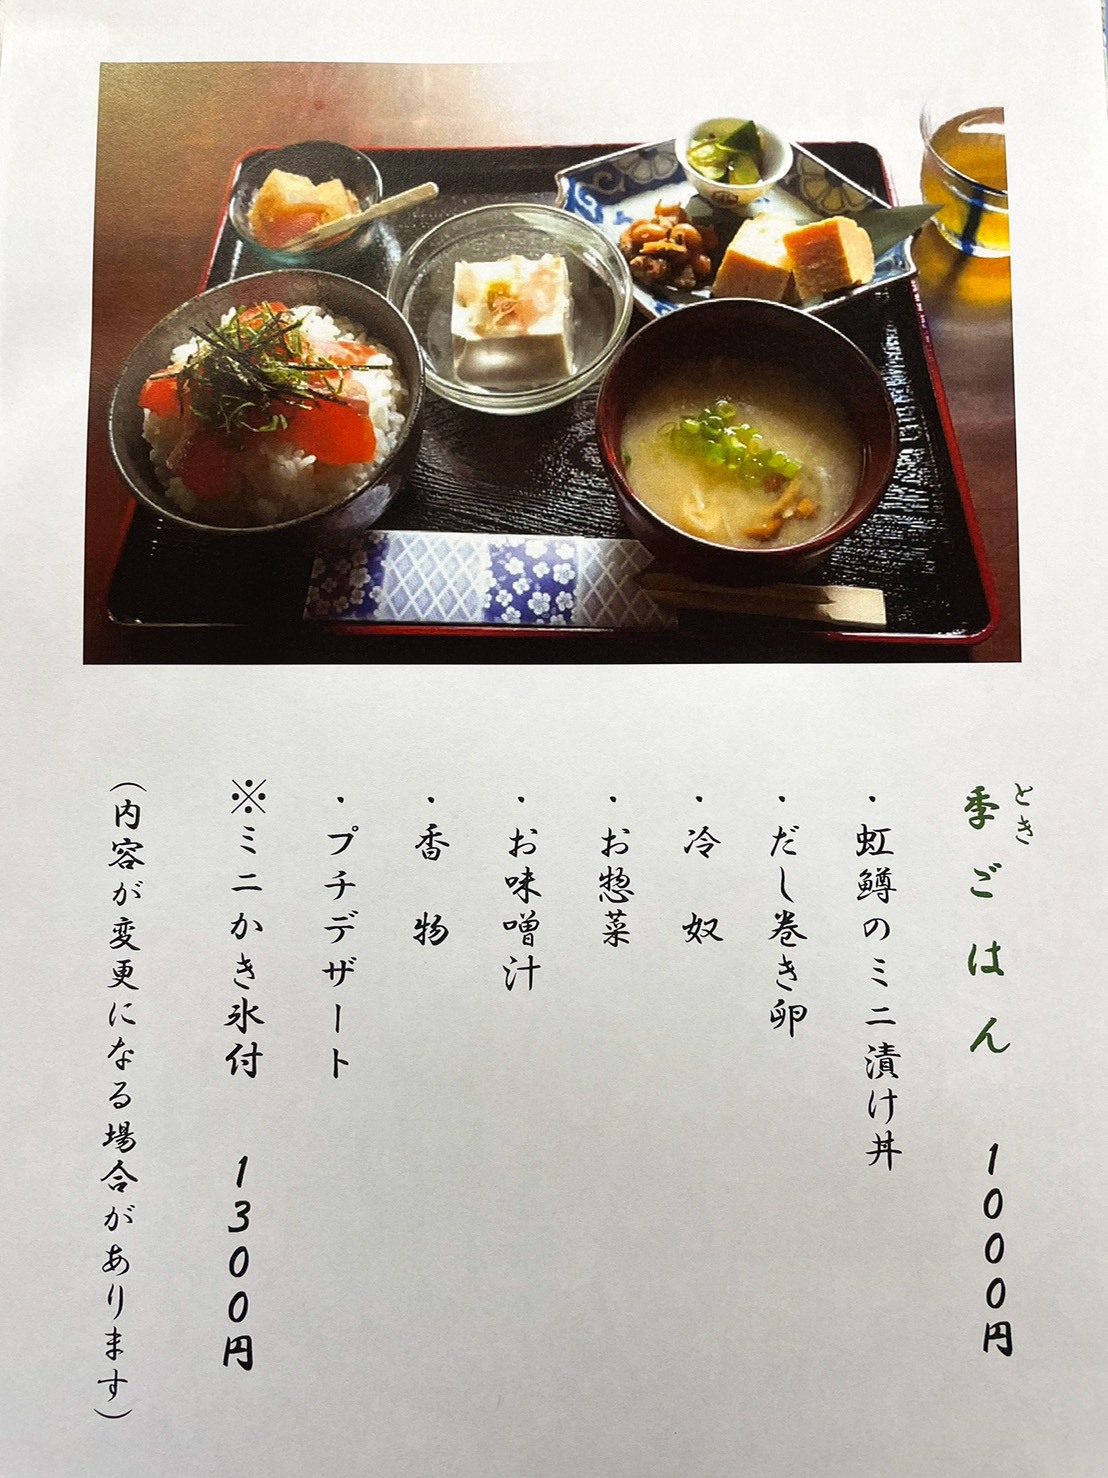 とき
季ごはん 1000円
・虹鱒のミニ漬け丼
・だし巻き卵
・冷 奴
・お惣菜
・お味噌汁
・香 物
・プチデザート
※ミニかき氷付 1300円
(内容が変更になる場合があります)